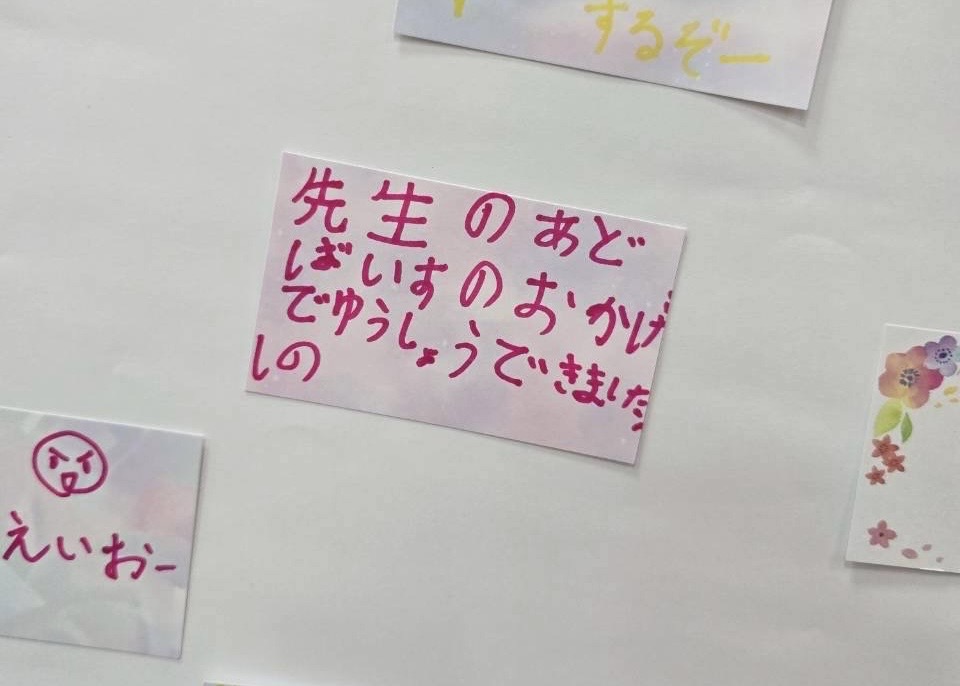 するぞー
先生のあど
ばいすのおかげ
でゆうしょうできました
しの
えいおー